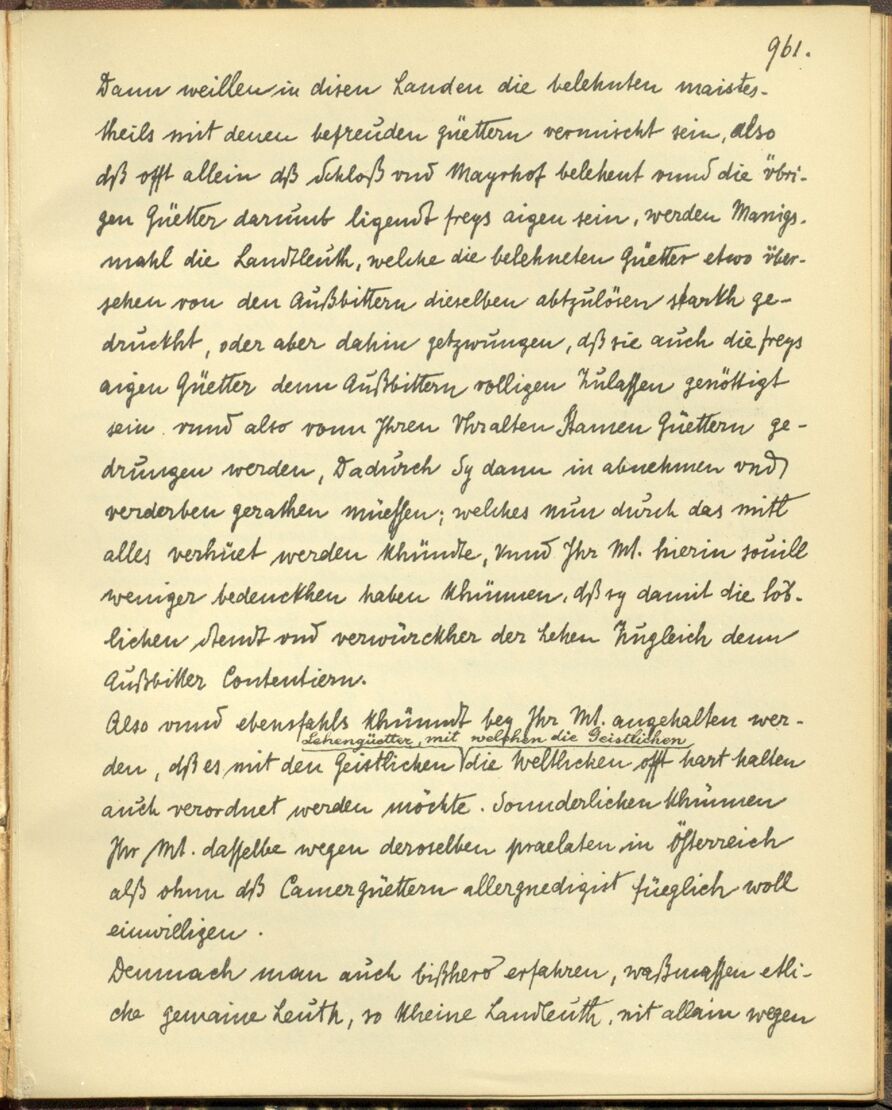 961.
Dann weillen in disen Landen die belehnten maistes-
theils mit denen befreuden güettern vermischt sein, also
dß offt allein dß Schloß vnd Mayrhof belehent vnnd die übri-
gen Güetter darumb ligendt freys aigen sein, werden Manigs-
mahl die Landtleuth, welche die belehneten Güetter etwo über-
sehen von den Außbittern dieselben abtzulösen starkh ge-
druckht, oder aber dahin getzwungen, dß sie auch die freys
aigen Güetter denn Außbittern volligen Zulassen genöttigt
sein vnnd also vonn Ihren Vhralten Stamen Güettern ge-
drungen werden, Dadurch Sy dann in abnehmen vnd
verderben gerathen müessen; welches nun durch das mitl
alles verhüet werden khündte, Vnnd Ihr Mt. hierin souill
weniger bedenckhen haben khünnen, dß sy damit die löb-
lichen Stendt vnd verwürckher der Lehen Zugleich denn
Außbitter Contentiern.
Also vnnd ebensfahls khünndt bey Ihr Mt. angehalten wer-
Lehengüetter, mit welchen die Geistlichen
den, dß es mit den Geistlichen die Weltlichen offt hart halten
auch verordnet werden möchte. Sonnderlichen khünnen
Ihr Mt. dasselbe wegen deroselben praelaten in Österreich
alß ohnn dß Camergüettern allergnedigist füeglich woll
einwilligen.
Demnach man auch bißhero erfahren, waßmassen etli-
che gemaine Leuth, so kheine Landleuth, nit allain wegen